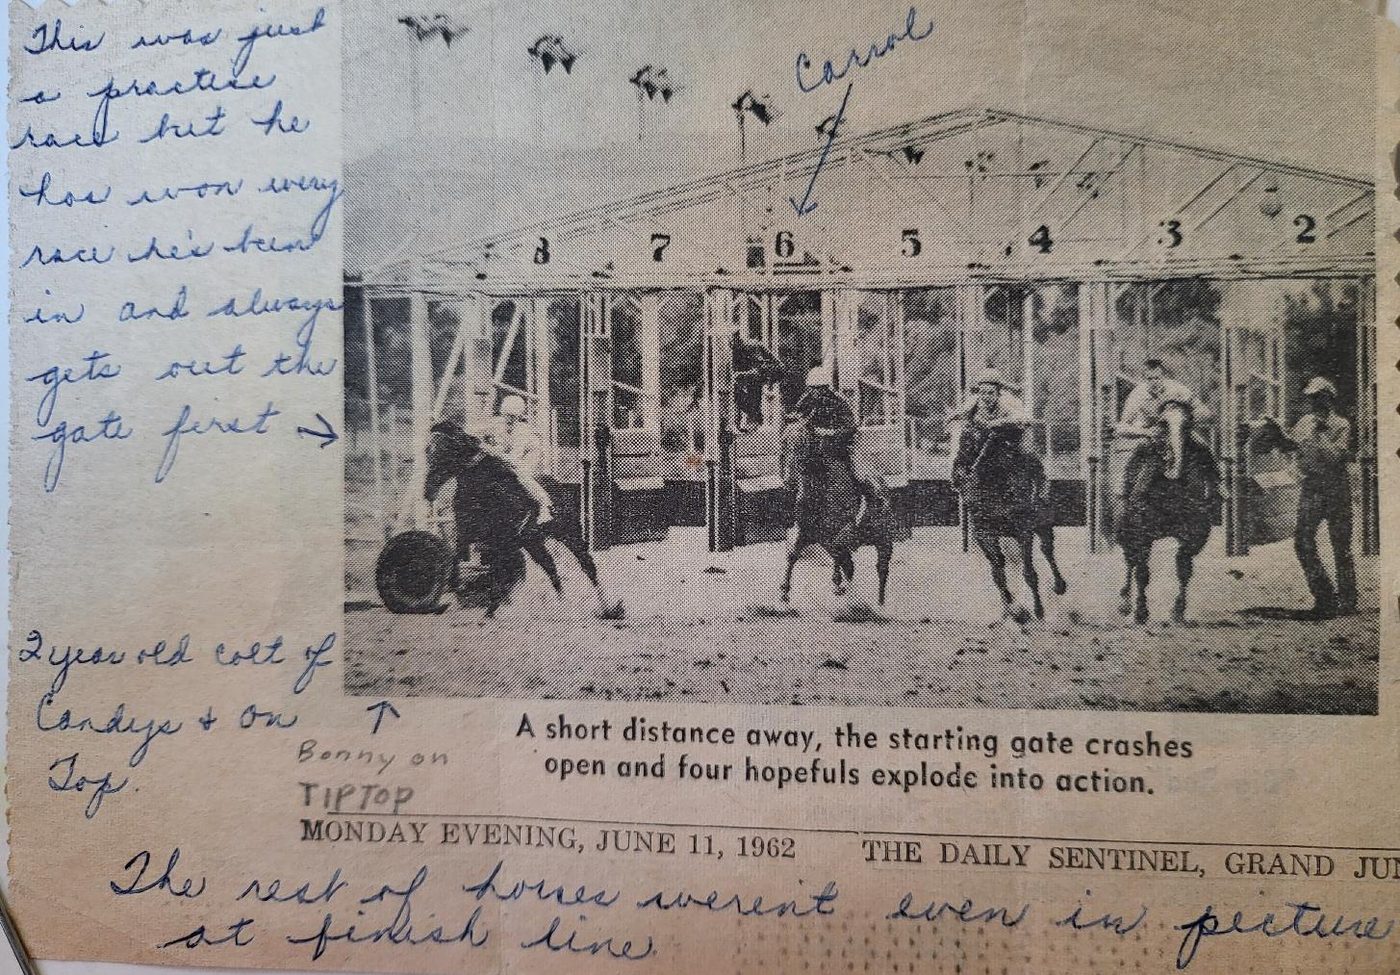 This was just
a practise
race but he
has won every
race he's been
in and always
gets out the
gate first →
Carrol
8 7 6 5 4 3 2
2 year old colt of
Candys & On
Top.
Bonny on
TIPTOP
A short distance away, the starting gate crashes
open and four hopefuls explode into action.
MONDAY EVENING, JUNE 11, 1962 THE DAILY SENTINEL, GRAND JUN
The rest of horses weren't even in picture
at finish line